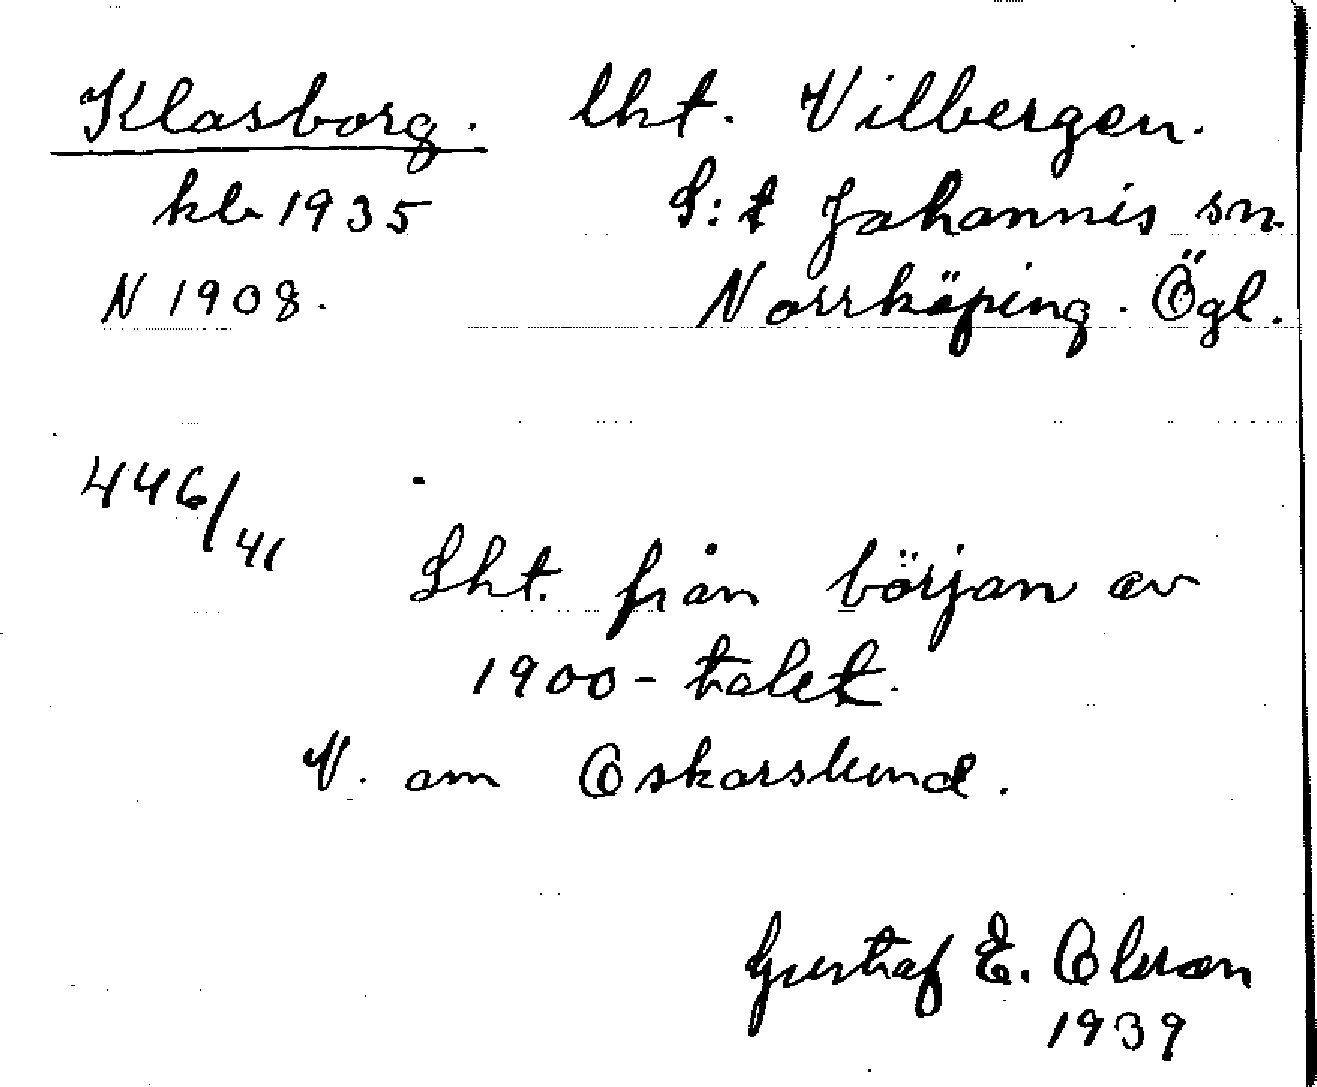 Klasborg. lht. Vilbergen.
kb 1935 S:t Johannis sn.
N 1908. Norrköping. Ögl.
446/41
Lht. från början av
1900-talet.
V. om Oskarslund.
Gustaf E. Olsson
1939